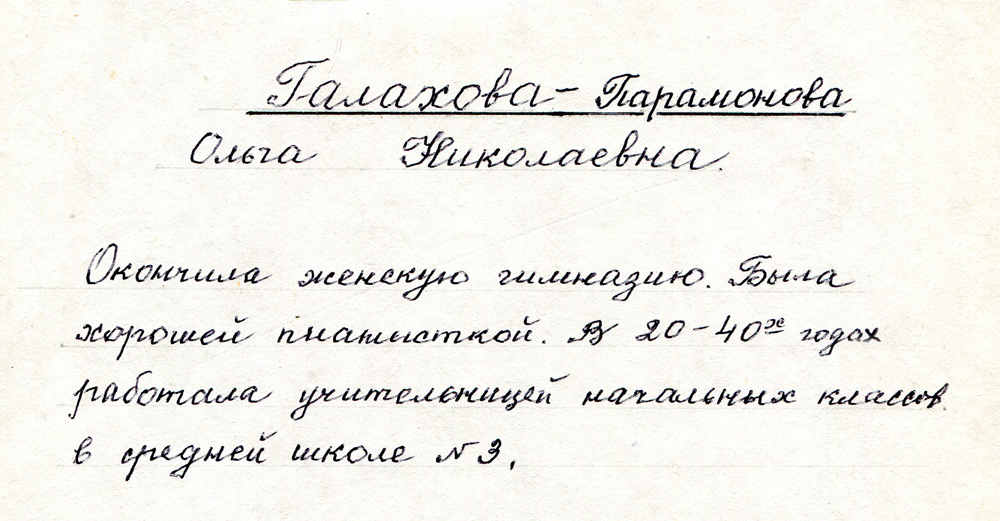 Галахова – Парамонова
Ольга Николаевна.
Окончила женскую гимназию. Была
хорошей пианисткой. В 20–40х годах
работала учительницей начальных классов
в средней школе № 3.